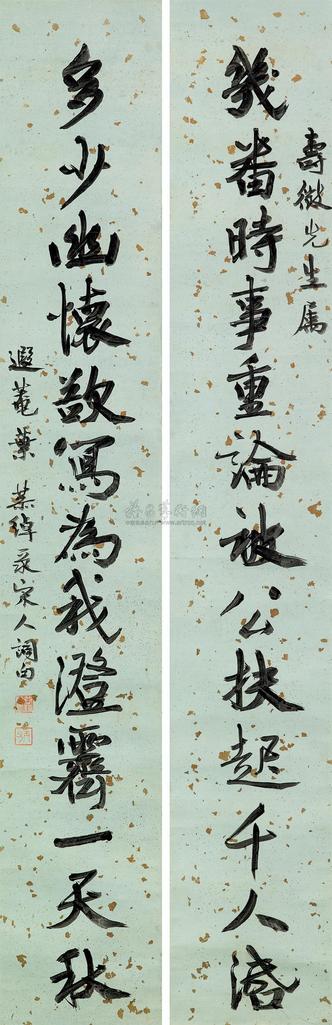 壽徵先生屬
幾番時事重論被公扶起千人活
多少幽懷欲寫為我澄霽一天秋
遐菴葉恭綽集宋人詞句